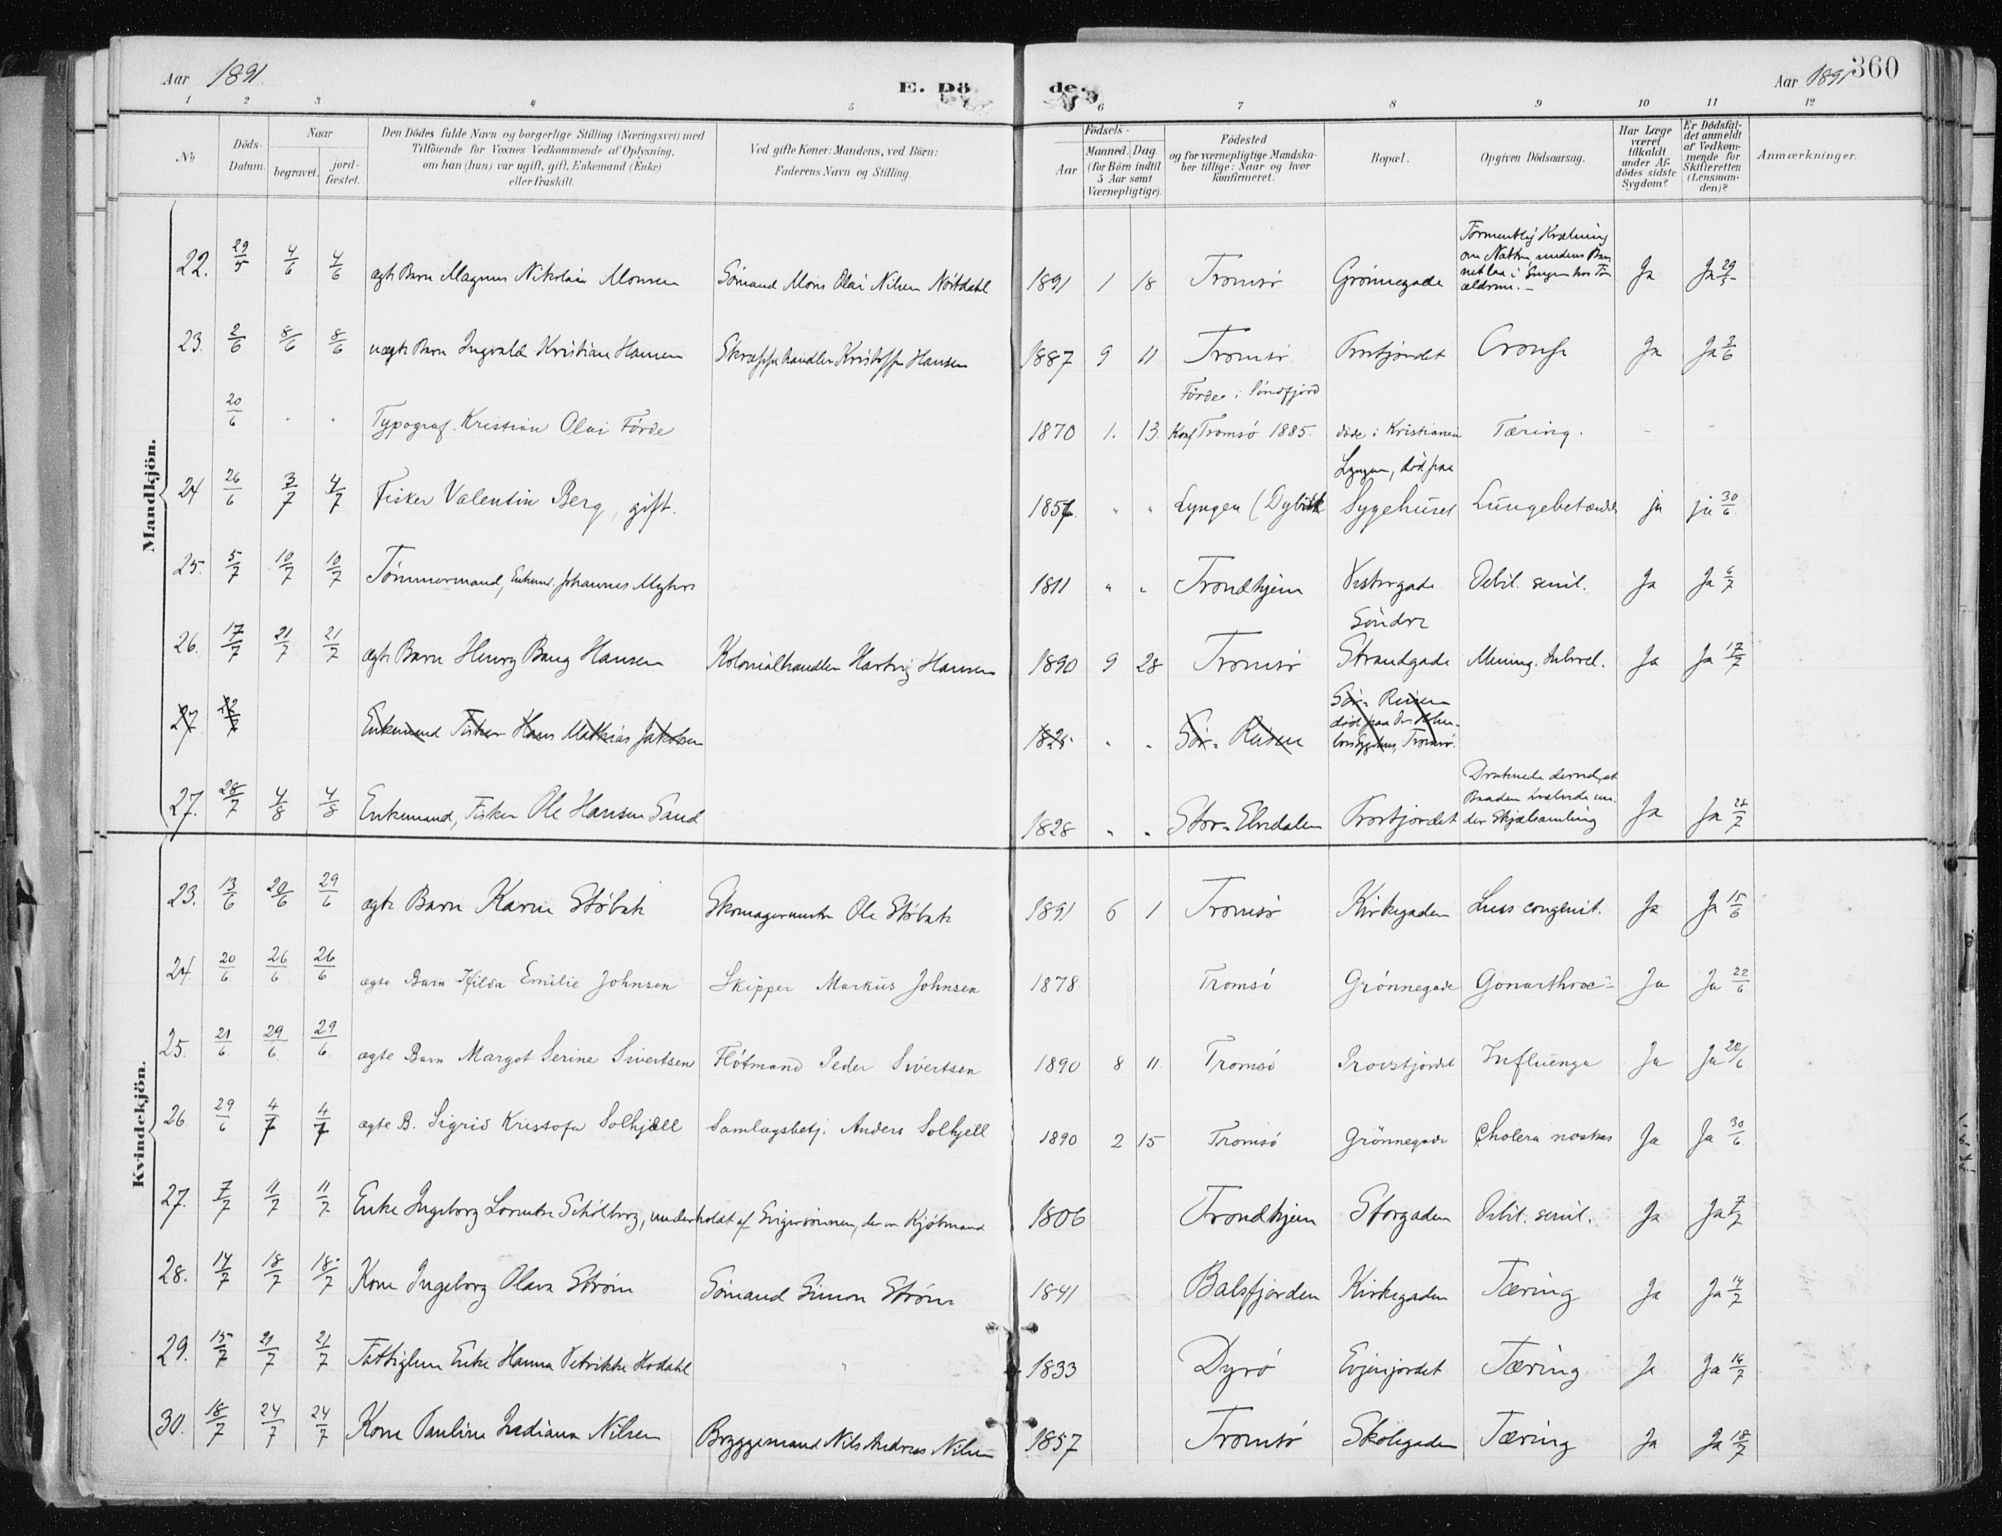 Aar 1891.
E. Dö de.
Aar 1891
360
1 2 3 4 5 6 7 8 9 10 11 12
No
Döds-Datum.
Naar
begravet.
jord-fæstet.
Den Dödes fulde Navn og borgerlige Stilling (Næringsvei) med
Tilföiende for Voxnes Vedkommende af Oplysning,
om han (hun) var ugift, gift, Enkemand (Enke)
eller fraskilt.
Ved gifte Koner: Mandens, ved Börn:
Faderens Navn og Stilling
Födsels-
Aar
Maaned. Dag
(for Börn indtil
5 Aar samt
Værnepligtige).
Födested
og for værnepligtige Mandska-
ber tillige: Naar og hvor
konfirmeret.
Bopæl.
Opgiven Dödsaarsag.
Har Læge
været
tilkaldt
under Af-
dödes sidste
Sygdom?
Er Dödsfal-
det anmeldt
af Vedkom-
mende for
Skifteretten
(Lensman-
den)?
Anmærkninger.
Mandkjön.
22. 29/5 4/6 4/6 ægte Barn Magnus Nikolai Monsen Sömand Mons Olai Nilsen Nöstdahl 1891 1 18 Tromsö Grönnegade Formentlig Kvælning
om Natten, medens Bar-
net laa i Sengen hos For-
ældrene.- Ja Ja 29/5
23. 2/6 8/6 8/6 uægte Barn Ingvald Kristian Hansen Skræppehandler Kristoffer Hansen 1887 9 11 Tromsö Provstjordet Croup Ja Ja 3/6
20/6 . . Typograf. Kristian Olai Förde 1870 1. 13. Förde i Söndfjord
Konf Tromsö 1885. döde i Kristiania Tæring. - -
24 26/6 3/7 4/7 Fisker Valentin Berg, gift. 1856. " " Lyngen (Dybvik Lyngen, död paa
Sygehuset Lungebetændel ja ja 30/6
25. 5/7 10/7 10/7 Tømmermand, Enkem. Johannes Myhre 1811 " " Trondhjem Vestregade Debil. senil. Ja Ja 6/7
26. 17/7 21/7 21/7 ægte Barn Henry Bang Hansen Kolonialhandler Hartvig Hansen 1890 9 28 Tromsö Söndre
Strandgade Mening. tuberel. Ja Ja 17/7
27 22/7 Enkemand Fisker Hans Mathias Jakobsen 1825 " " Sör-Reisen Sör-Reisen
död paa
Tromsö.
27. 28/7 4/8 4/8 Enkemand, Fisker Ole Hansen Sand 1828 " " Stor-Elvedalen Provstjordet Druknede derved, at
Baaden hvelvede un-
der Skjælsamling Ja Ja 28/7
Kvindekjön.
23. 13/6 20/6 29/6 ægte Barn Karen Stöbak Skomagermester Ole Stöbak 1891 6 1 Tromsö Kirkegaden Lues congenit. Ja Ja 15/6
24 20/6 26/6 26/6 ægte Barn Hilda Emilie Johnsen Skipper Markus Johnsen 1878 Tromsö Grönnegade Gonarthroc Ja Ja 22/6
25. 21/6 29/6. 29/6. ægte Barn Margot Serine Sivertsen Flötmand Peder Sivertsen 1890 8 11 Tromsö Provstjordet Influenza Ja Ja 22/6
26 29/6 4/7 4/7 ægte B. Sigrid Kristofa Solhjell Samlagsbetj. Anders Solhjell 1890 2 15 Tromsö Grönnegade Cholera nostras Ja Ja 30/6
27. 7/7 11/7 11/7 Enke Ingeborg Lorentze Schölberg, underholdt af Svigersönnen, der er Kjöbmand 1806 Trondhjem Storgaden Debil. senil. Ja Ja 7/7
28. 14/7 18/7 18/7 Kone Ingeborg Olava Ström Sömand Simon Ström 1841 Balsfjorden Kirkegaden Tæring Ja Ja 14/7
29. 15/7 21/7 21/7 Fattiglem Enke Hanna Petrikke Hodahl " 1833 Dyrö Evjenjordet Tæring Ja Ja 16/7
30. 18/7 24/7 24/7 Kone Pauline Indiana Nilsen Bryggemand Nils Andreas Nilsen 1857 Tromsö Skolegaden Tæring Ja Ja 18/7